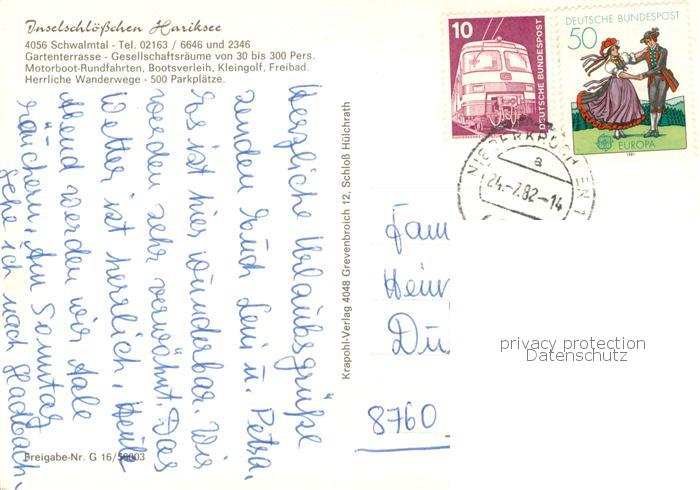 Inselschlößchen Hariksee
4056 Schwalmtal - Tel. 02163 / 6646 und 2346
Gartenterrasse - Gesellschaftsräume von 30 bis 300 Pers.
Motorboot-Rundfahrten, Bootsverleih, Kleingolf, Freibad.
Herrliche Wanderwege - 500 Parkplätze.
Herzliche Urlaubsgrüße
senden Euch Leni u. Petra.
Es ist hier wunderbar. Wir
werden sehr verwöhnt. Das
Wetter ist herrlich. Heute
Abend werden wir Aale
räuchern. Am Sonntag
gehe ich nach Gladbach.
Freigabe-Nr. G 16/56003
Krapohl-Verlag 4048 Grevenbroich 12, Schloß Hülchrath
10
DEUTSCHE BUNDESPOST
DEUTSCHE BUNDESPOST
50
EUROPA
1981
NIEDERKRÜCHTEN 1
a
24.-7.82-14
Fam
Hein
Dü
8760
privacy protection
Datenschutz